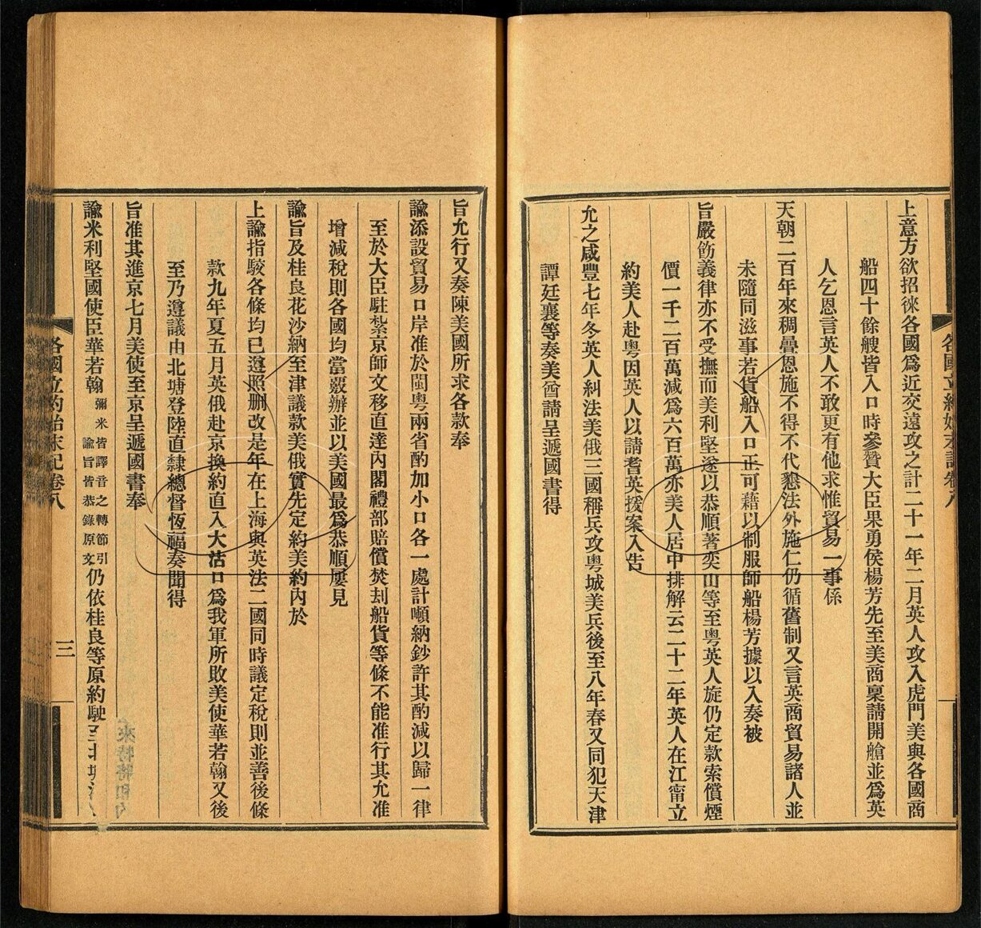 上意方欲招徠各國爲近交遠攻之計二十一年二月英人攻入虎門美與各國商
船四十餘艘皆入口時參贊大臣果勇侯楊芳先至美商稟請開艙並爲英
人乞恩言英人不敢更有他求惟貿易一事係
天朝二百年來稠疊恩施不得不代懇法外施仁仍循舊制又言英商貿易諸人並
未隨同滋事若貨船入口正可藉以制服師船楊芳據以入奏被
旨嚴飭義律亦不受撫而美利堅遂以恭順著奕山等至粵英人旋仍定款索償煙
價一千二百萬減爲六百萬亦美人居中排解云二十二年英人在江甯立
約美人赴粵因英人以請耆英援案入告
允之咸豐七年冬英人糾法美俄三國稱兵攻粵城美兵後至八年春又同犯天津
譚廷襄等奏美酋請呈遞國書得
各國立約始末記卷八
旨允行又奏陳美國所求各款奉
諭添設貿易口岸准於閩粵兩省酌加小口各一處計噸納鈔許其酌減以歸一律
至於大臣駐紮京師文移直達內閣禮部賠償焚刦船貨等條不能准行其允准
增減稅則各國均當覈辦並以美國最爲恭順屢見
諭旨及桂良花沙納至津議款美俄實先定約美約內於
上諭指駮各條均已遵照删改是年在上海與英法二國同時議定稅則並善後條
款九年夏五月英俄赴京換約直入大沽口爲我軍所敗美使華若翰又後
至乃遵議由北塘登陸直隸總督恆福奏聞得
旨准其進京七月美使至京呈遞國書奉
諭米利堅國使臣華若翰彌米皆譯音之轉節引諭旨皆恭錄原文仍依桂良等原約駛至北
各國立約始末記卷八
三